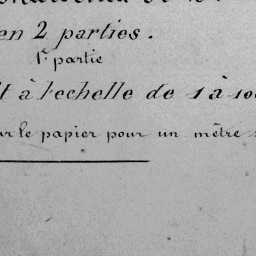 en 2 parties.
1e partie
à l'echelle de 1 à
le papier pour un mètre